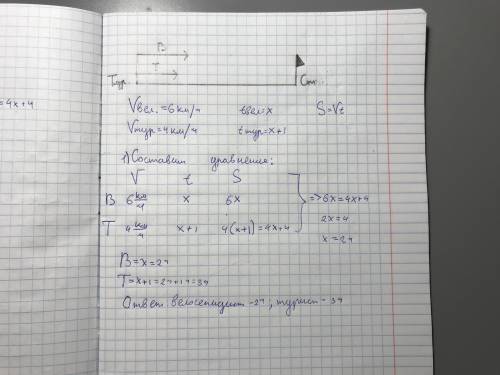 =4x+4
В
Т
Тур. Стан.
Vвел.=6км/ч tвел=x S=Vt
Vтур=4км/ч tтур=x+1
1) Составим уравнения:
V t S
В 6 км/ч x 6x => 6x=4x+4
2x=4
Т 4 км/ч x+1 4(x+1)=4x+4
x=2ч
В=x=2ч
Т=x+1=2ч+1ч=3ч
Ответ велосепидист -2ч, турист -3ч